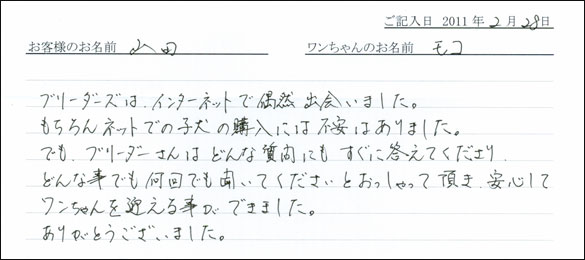 ご記入日 2011年2月28日
お客様のお名前 山田 ワンちゃんのお名前 モコ
ブリーダーズは、インターネットで偶然出会いました。
もちろんネットでの子犬の購入には不安はありました。
でも、ブリーダーさんはどんな質問にもすぐに答えてくださり、
どんな事でも何回でも聞いてくださいとおっしゃって頂き、安心して
ワンちゃんを迎える事ができました。
ありがとうございました。